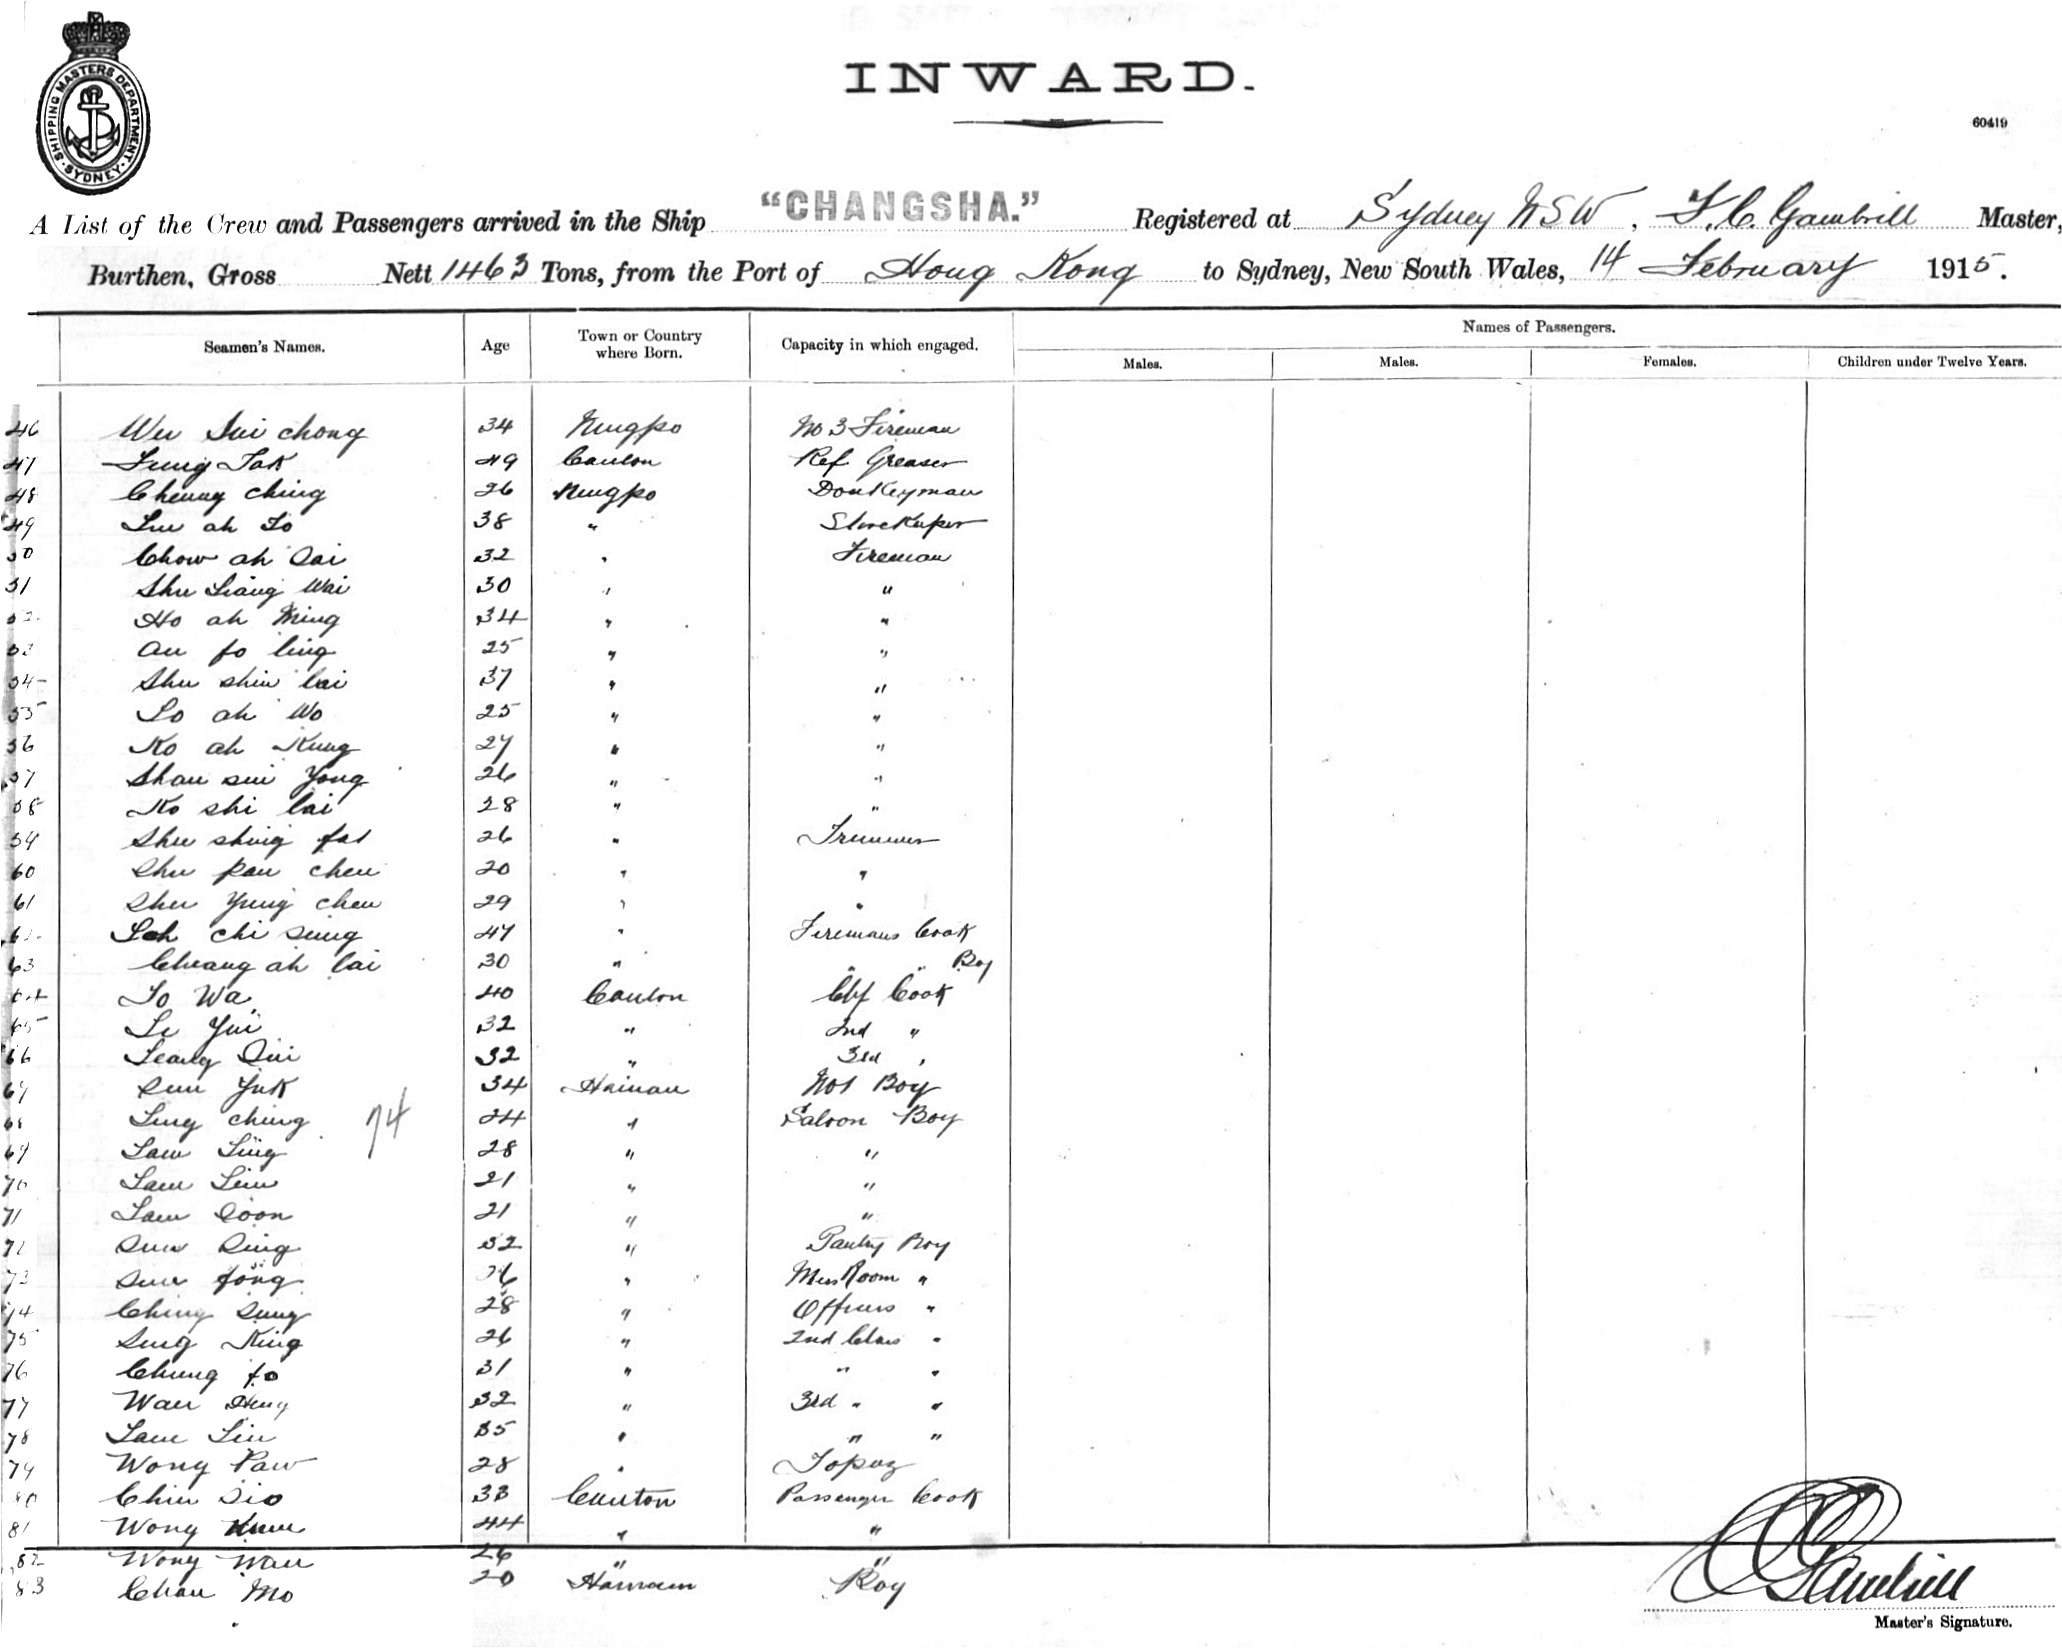 SHIPPING MASTERS DEPARTMENT SYDNEY
INWARD.
60419
A List of the Crew and Passengers arrived in the Ship "CHANGSHA." Registered at Sydney NSW, Master,
Burthen, Gross Nett 1463 Tons, from the Port of Hong Kong to Sydney, New South Wales, 14 February 1915.
Names of Passengers.
Seamen's Names. Age Town or Country where Born. Capacity in which engaged. Males. Males. Females. Children under Twelve Years.
46 Wu Sui chong 34 Ningpo No 3 Fireman
47 Fung Tak 49 Canton Ref Greaser
48 Cheung ching 26 Ningpo Donkeyman
49 ah 38 " Storekeeper
50 Chow ah Sai 32 " Fireman
51 Shu Liang Wai 30 " "
52 Ho ah Ming 34 " "
53 au fo ling 25 " "
54 Shu shin lai 37 " "
55 Lo ah Wo 25 " "
56 Ko ah Kung 27 " "
57 Shau sui Yong 26 " "
58 Ko shi lai 28 " "
59 Shu shing fat 26 " Trimmer
60 Shu pau cheu 20 " "
61 Shu Yung cheu 29 " "
62 chi sung 47 " Firemans Cook
63 Cheang ah lai 30 " " " Boy
64 Lo Wa 40 Canton Chf Cook
65 Le Yui 32 " 2nd "
66 Leang 32 " 3rd "
67 Sun Yuk 34 Hainan No1 Boy
68 Ling ching 74 24 " Saloon Boy
69 Lam Ling 28 " "
70 Lam Lim 21 " "
71 Lam Coon 21 " "
72 Sun Sing 32 " Pantry Boy
73 Sun fong 26 " Mess Room "
74 Ching Sung 28 " Officers "
75 Sung King 26 " 2nd Class "
76 Chung fo 31 " " "
77 Wan Hung 32 " 3rd " "
78 Lam Lin 35 " " "
79 Wong Paw 28 " Topaz
80 Chin Sio 33 Canton Passenger Cook
81 Wong 44 " "
82 Wong Wan 26 " "
83 Chau Mo 20 Hainan Boy
Master's Signature.